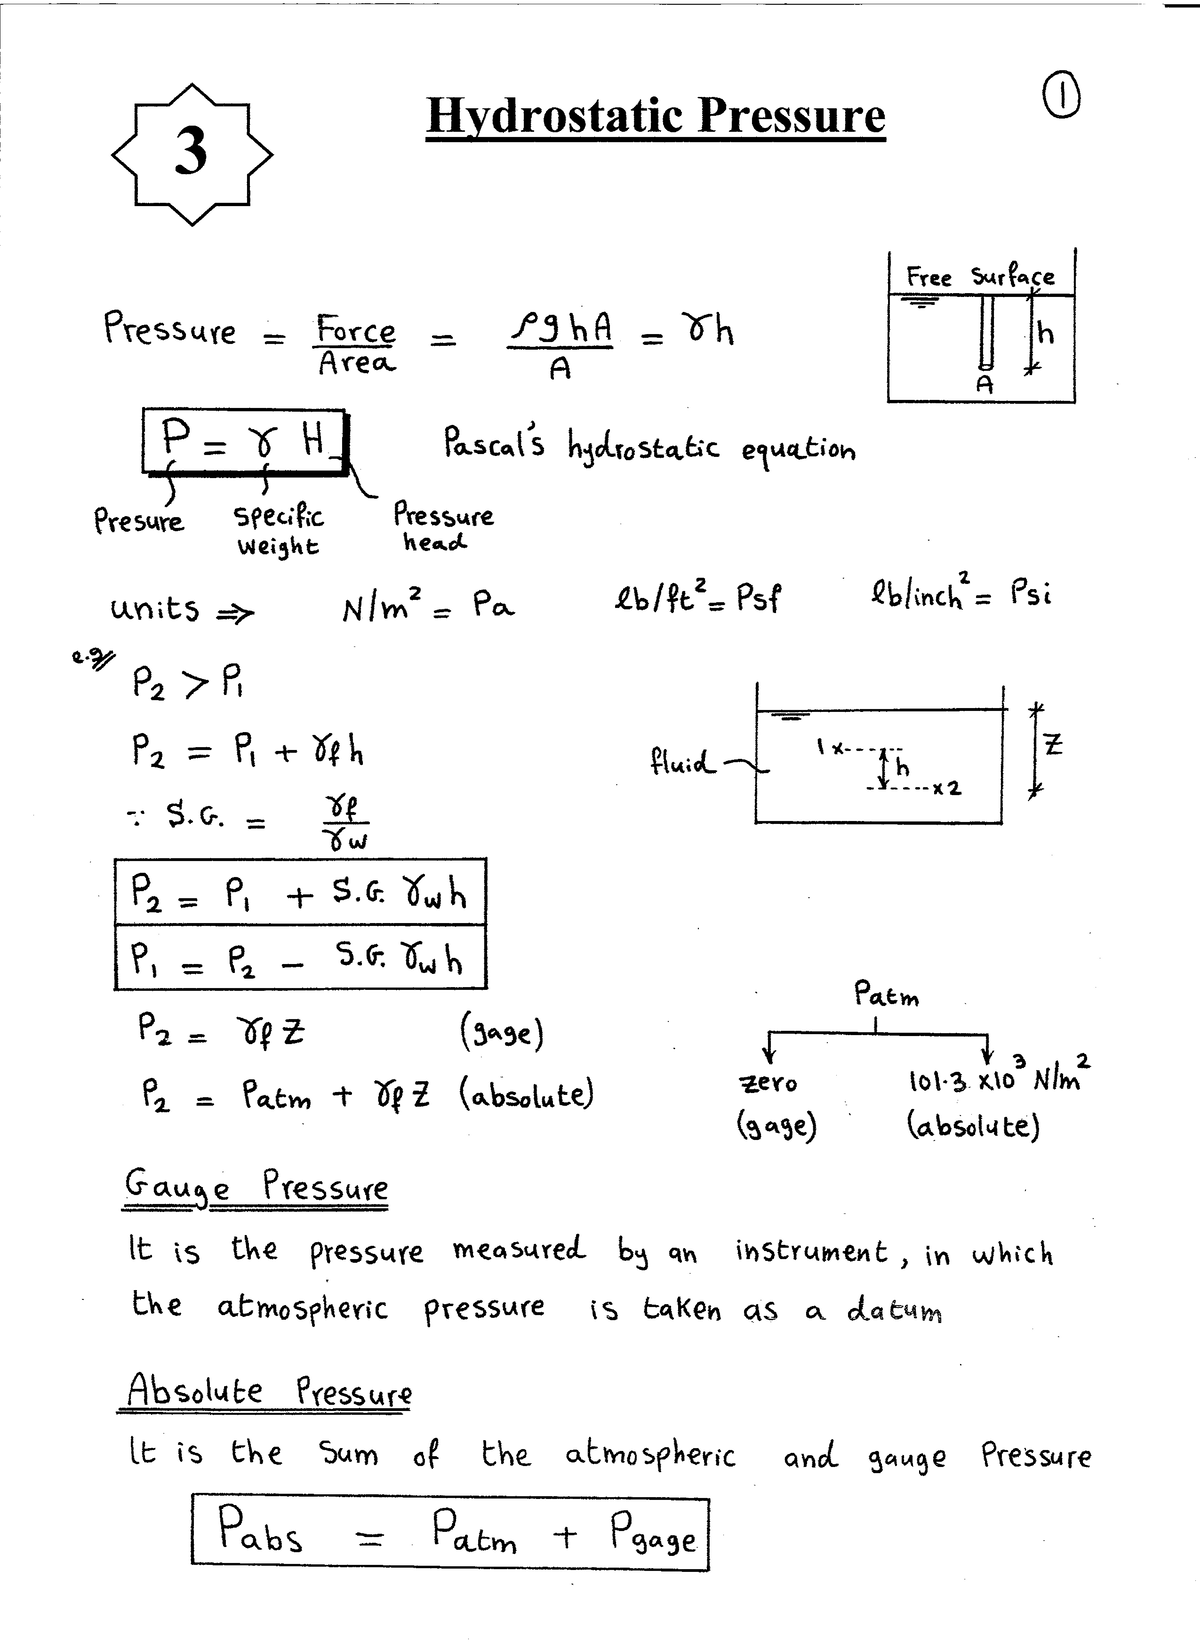 ①
3
Hydrostatic Pressure
Free Surface
h
A
Pressure = Force/Area = ρghA/A = γh
P = γ H
Pascal's hydrostatic equation
Presure
specific weight
Pressure head
units ⇒ N/m² = Pa lb/ft² = Psf lb/inch² = Psi
e.g//
P₂ > P₁
P₂ = P₁ + γf h
fluid
1 x
h
x 2
Z
∵ S.G. = γf/γw
P₂ = P₁ + S.G. γw h
P₁ = P₂ − S.G. γw h
P₂ = γf Z (gage)
P₂ = Patm + γf Z (absolute)
Patm
zero 101.3 x10³ N/m²
(gage) (absolute)
Gauge Pressure
It is the pressure measured by an instrument, in which
the atmospheric pressure is taken as a datum
Absolute Pressure
It is the Sum of the atmospheric and gauge Pressure
Pabs = Patm + Pgage